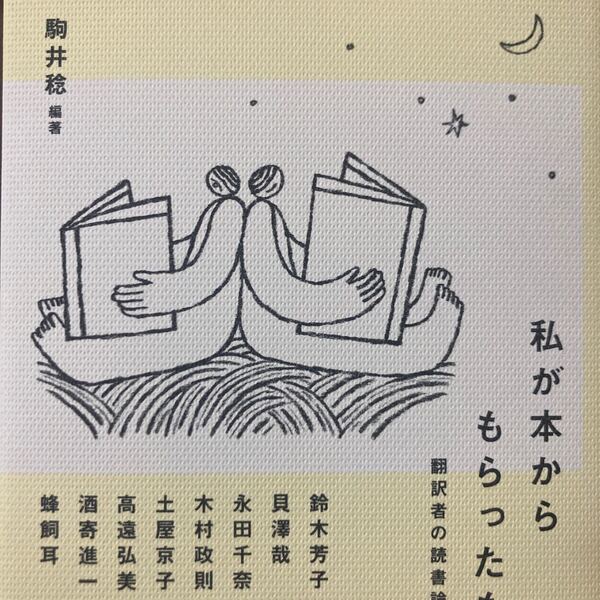 駒井稔 編著
私が本から
もらったも
翻訳者の読書論
鈴木芳子
貝澤哉
永田千奈
木村政則
土屋京子
高遠弘美
酒寄進一
蜂飼耳